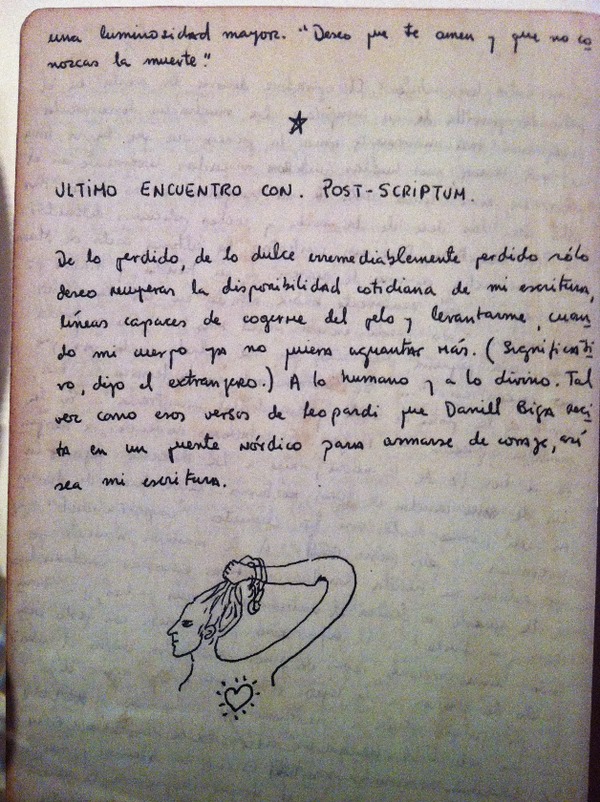 una luminosidad mayor. "Deseo que te amen y que no co
nozcas la muerte."
ULTIMO ENCUENTRO CON. POST-SCRIPTUM.
De lo perdido, de lo dulce irremediablemente perdido sólo
deseo recuperar la disponibilidad cotidiana de mi escritura,
líneas capaces de cogerme del pelo y levantarme, cuan
do mi cuerpo ya no quiera aguantar más. (Significati
vo, dijo el extranjero.) A lo humano y a lo divino. Tal
vez como esos versos de Leopardi que Daniel Biga reci
ta en un puente nórdico para armarse de coraje, así
sea mi escritura.